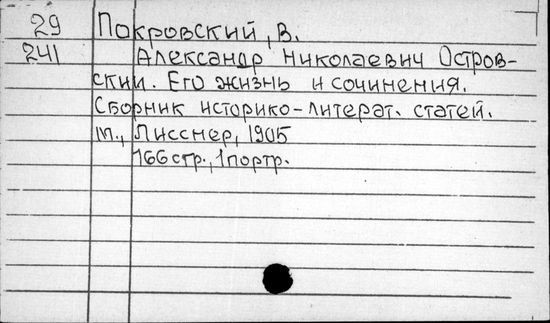 29 Покровский, В.
241 Александр Николаевич Остров-
ский. Его жизнь и сочинения.
Сборник историко-литерат. статей.
М., Лисснер, 1905
166 стр., 1 портр.